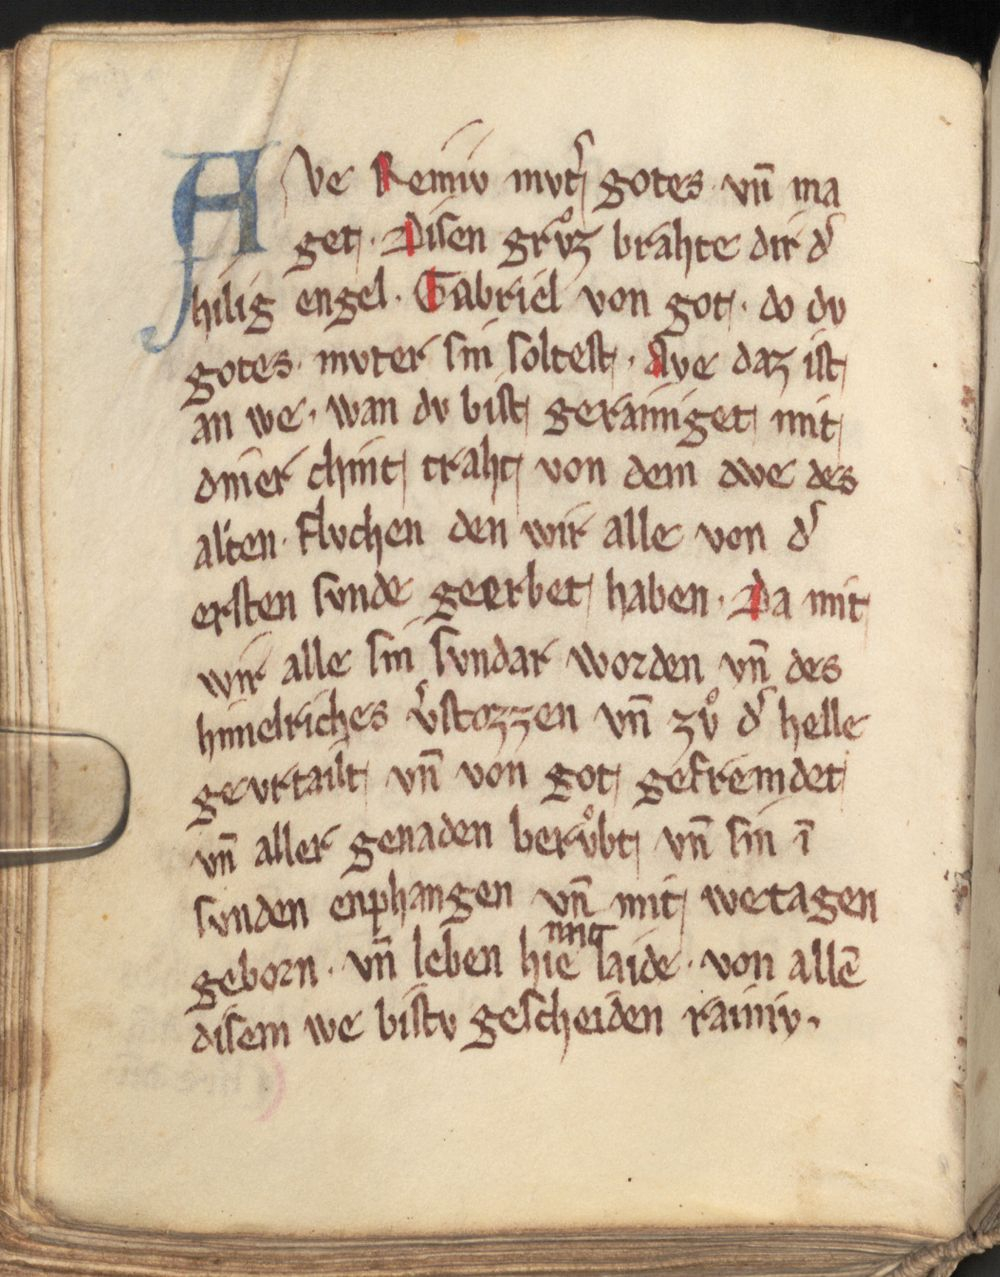 Ave Reiniv mvt̾ gotes vn̄ ma
get · Disen grvͦz brahte dir d̾
hilig engel · Gabriel von got · do dv
gotes · mvter sin soltest · Ave daz ist
an we · wan dv bist gerainiget mit
diner chint traht von dem awe des
alten · flvchen den wir alle von d̾
ersten svnde geerbet haben · Da mit
wir alle sin svndar worden vn̄ des
himelriches v̾stozzen vn̄ zvͦ d̾ helle
gevrtailt vn̄ von got gefremdet
vn̄ aller genaden berovbt vn̄ sin ī
svnden enphangen vn̄ mit wetagen
geborn · vn̄ leben hie mit laide · von allē
disem we bistv gescheiden rainiv ·